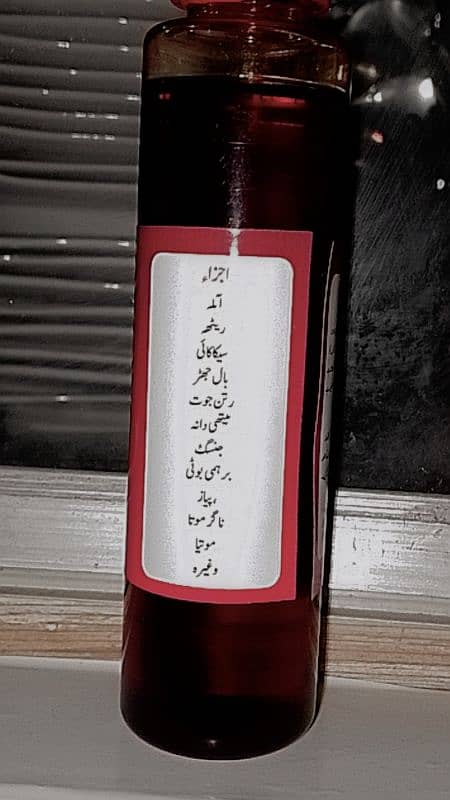 اجزاء
آملہ
ریٹھہ
سیکاکائی
بال جھڑ
رتن جوت
میتھی دانہ
جنسنگ
برہمی بوٹی
پیاز
ناگر موتا
موتیا
وغیرہ